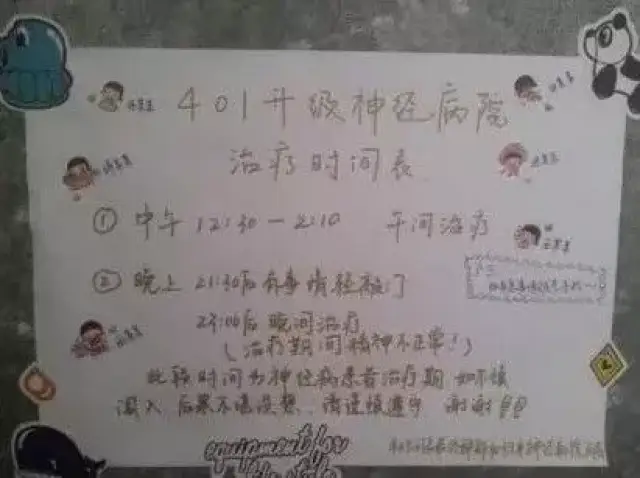 401升级神经病院
治疗时间表
① 中午 12:30—2:10 午间治疗
② 晚上 21:30后有事请轻敲门
23:00后晚间治疗
(治疗期间精神不正常!)
此段时间为神经病患者治疗期 如不慎
闯入 后果不堪设想 请谨慎遵守 谢谢!!
equipment for